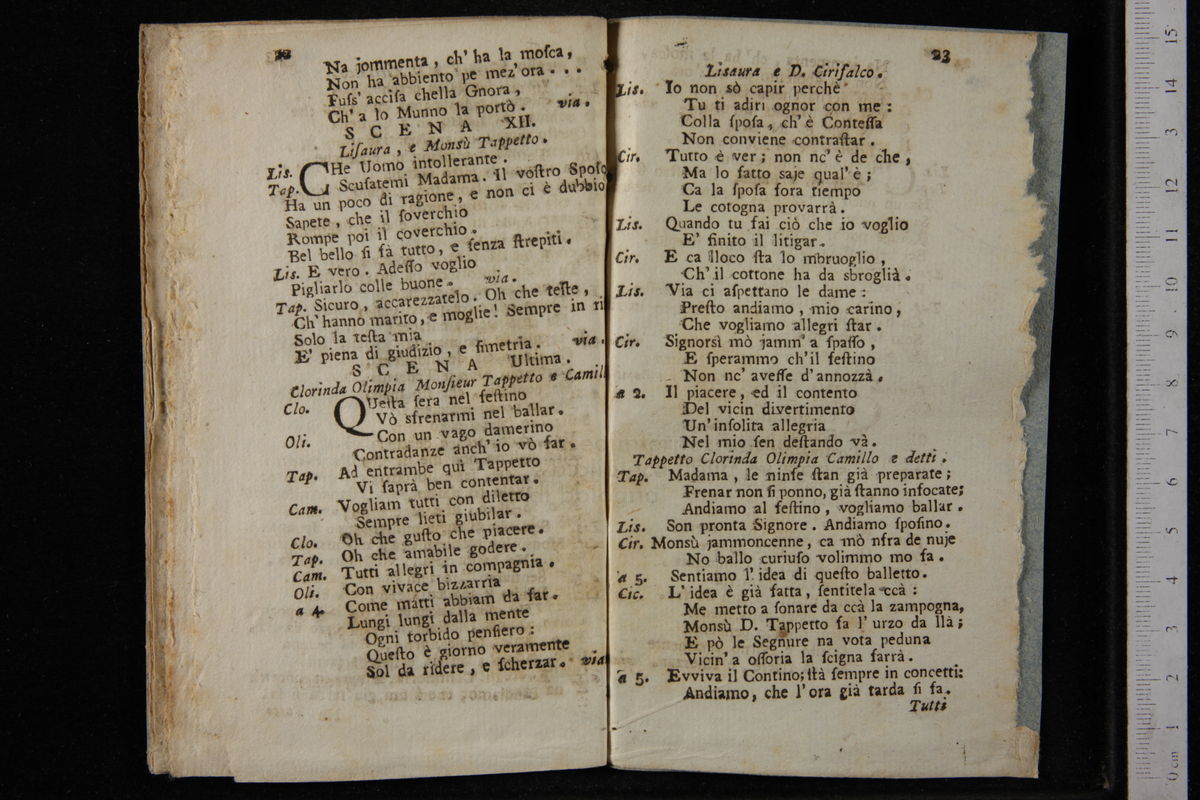 22
Na jommenta, ch' ha la moſca,
Non ha abbiento pe mez' ora . . .
Fuſs' acciſa chella Gnora,
Ch' a lo Munno la portò. via.
SCENA XII.
Liſaura, e Monsù Tappetto.
Lis. CHe Uomo intollerante.
Tap. Scuſatemi Madama. Il voſtro Spoſo
Ha un poco di ragione, e non ci è dubbio
Sapete, che il ſoverchio
Rompe poi il coverchio.
Bel bello ſi fà tutto, e ſenza ſtrepiti.
Lis. E vero. Adeſſo voglio
Pigliarlo colle buone. via.
Tap. Sicuro, accarezzatelo. Oh che teſte,
Ch' hanno marito, e moglie! Sempre in ri
Solo la teſta mia
E' piena di giudizio, e ſimetria. via.
SCENA Ultima.
Clorinda Olimpia Monſieur Tappetto e Camill
Clo. QUeſta ſera nel feſtino
Vò sfrenarmi nel ballar.
Oli. Con un vago damerino
Contradanze anch' io vò far.
Tap. Ad entrambe quì Tappetto
Vi ſaprà ben contentar.
Cam. Vogliam tutti con diletto
Sempre lieti giubilar.
Clo. Oh che guſto che piacere.
Tap. Oh che amabile godere.
Cam. Tutti allegri in compagnia.
Oli. Con vivace bizzarria
a 4. Come matti abbiam da far.
Lungi lungi dalla mente
Ogni torbido penſiero:
Queſto è giorno veramente
Sol da ridere, e ſcherzar. via
23
Lisaura e D. Cirifalco.
Lis. Io non sò capir perchè
Tu ti adiri ognor con me:
Colla ſpoſa, ch' è Conteſſa
Non conviene contraſtar.
Cir. Tutto è ver; non nc' è de che,
Ma lo fatto saje qual' è;
Ca la ſpoſa fora tiempo
Le cotogna provarrà.
Lis. Quando tu fai ciò che io voglio
E' finito il litigar.
Cir. E ca lloco ſta lo mbruoglio,
Ch' il cottone ha da sbroglià.
Lis. Via ci aſpettano le dame:
Preſto andiamo, mio carino,
Che vogliamo allegri ſtar.
Cir. Signorsì mò jamm' a ſpaſſo,
E ſperammo ch' il feſtino
Non nc' aveſſe d' annozzà.
a 2. Il piacere, ed il contento
Del vicin divertimento
Un' inſolita allegria
Nel mio ſen deſtando và.
Tappetto Clorinda Olimpia Camillo e detti.
Tap. Madama, le ninfe ſtan già preparate;
Frenar non ſi ponno, già ſtanno infocate;
Andiamo al feſtino, vogliamo ballar.
Lis. Son pronta Signore. Andiamo ſpoſino.
Cir. Monsù jammoncenne, ca mò nfra de nuje
No ballo curiuſo volimmo mo fa.
a 5. Sentiamo l' idea di queſto balletto.
Cic. L' idea è già fatta, ſentitela ccà:
Me metto a ſonare da ccà la zampogna,
Monsù D. Tappetto fa l' urzo da llà;
E pò le Segnure na vota peduna
Vicin' a oſſoria la ſcigna farrà.
a 5. Evviva il Contino; ſtà ſempre in concetti:
Andiamo, che l' ora già tarda ſi fa.
Tutti
0 cm 1 2 3 4 5 6 7 8 9 10 11 12 13 14 15